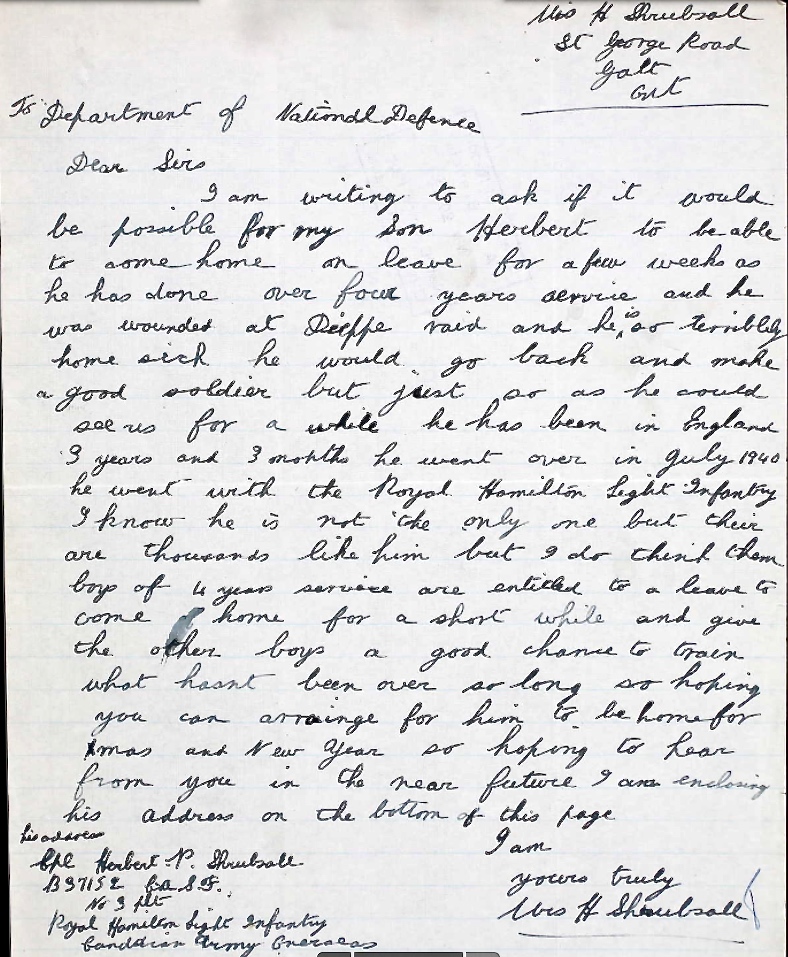 Mrs H Shrubsall
St George Road
Galt
Ont
To Department of National Defence
Dear Sirs
I am writing to ask if it would
be possible for my Son Herbert to be able
to come home on leave for a few weeks as
he has done over four years service and he
was wounded at Dieppe raid and he is so terribly
home sick he would go back and make
a good soldier but just so as he could
see us for a while he has been in England
3 years and 3 months he went over in July 1940
he went with the Royal Hamilton Light Infantry
I know he is not the only one but their
are thousands like him but I do think them
boys of 4 years service are entitled to a leave to
come home for a short while and give
the other boys a good chance to train
what hasnt been over so long so hoping
you can arrainge for him to be home for
Xmas and New Year so hoping to hear
from you in the near future I am enclosing
his address on the bottom of this page
I am
yours truly
Mrs H Shrubsall
his address
Cpl Herbert P. Shrubsall
B37152 C.A.S.F.
No 3 Plt
Royal Hamilton Light Infantry
Canadian Army Overseas